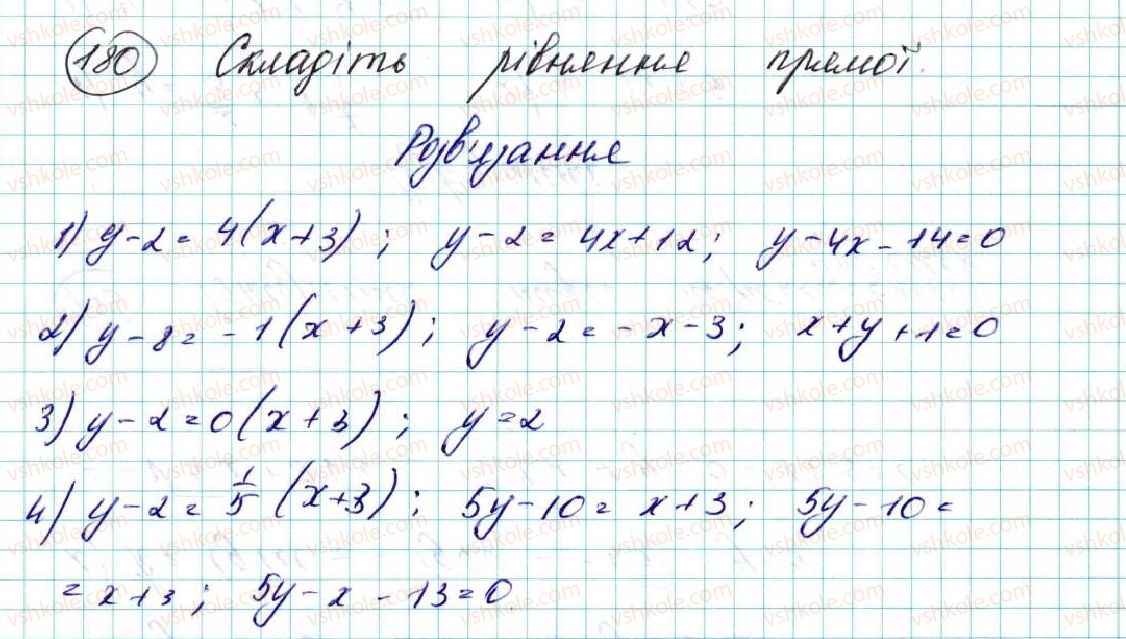 180 Складіть рівняння прямої.
Розв'язання
1) y-2=4(x+3); y-2=4x+12; y-4x-14=0
2) y-8=-1(x+3); y-2=-x-3; x+y+1=0
3) y-2=0(x+3); y=2
4) y-2=1/5(x+3); 5y-10=x+3; 5y-10=
=x+3; 5y-x-13=0.